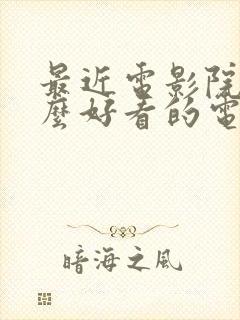 最近電影院
麼好看的電
暗海之風